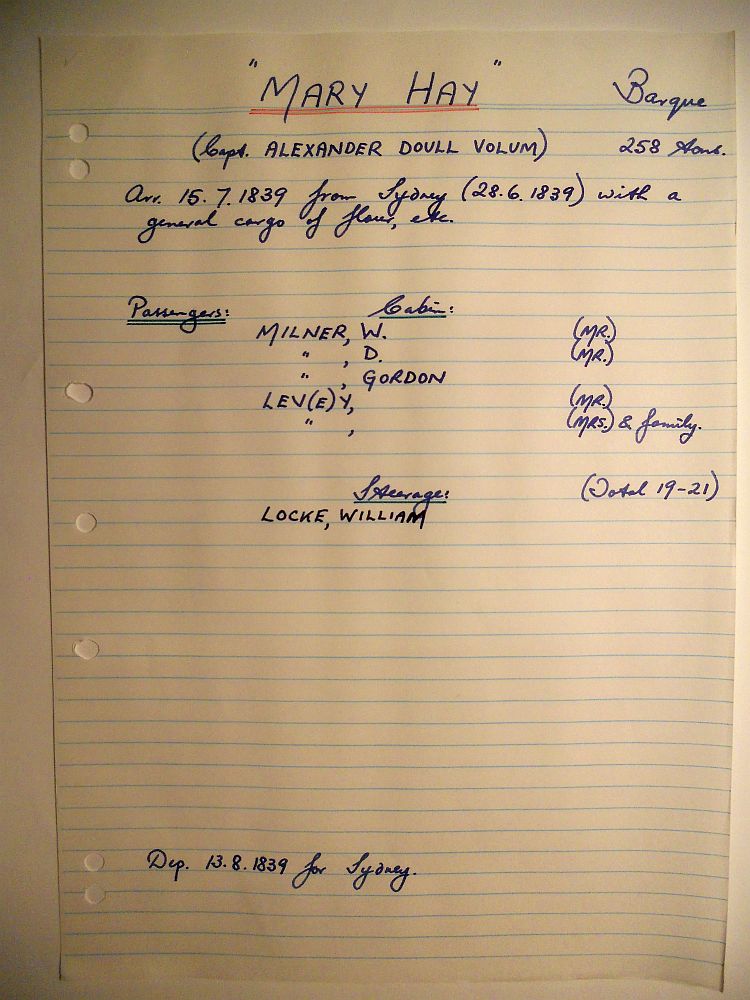 "MARY HAY" Barque
(Capt. ALEXANDER DOULL VOLUM) 258 tons.
Arr. 15.7.1839 from Sydney (28.6.1839) with a
general cargo of flour, etc.
Passengers: Cabin:
MILNER, W. (MR.)
" , D. (MR.)
" , GORDON
LEV(E)Y, (MR.)
" , (MRS.) & family.
Steerage: (Total 19-21)
LOCKE, WILLIAM
Dep. 13.8.1839 for Sydney.